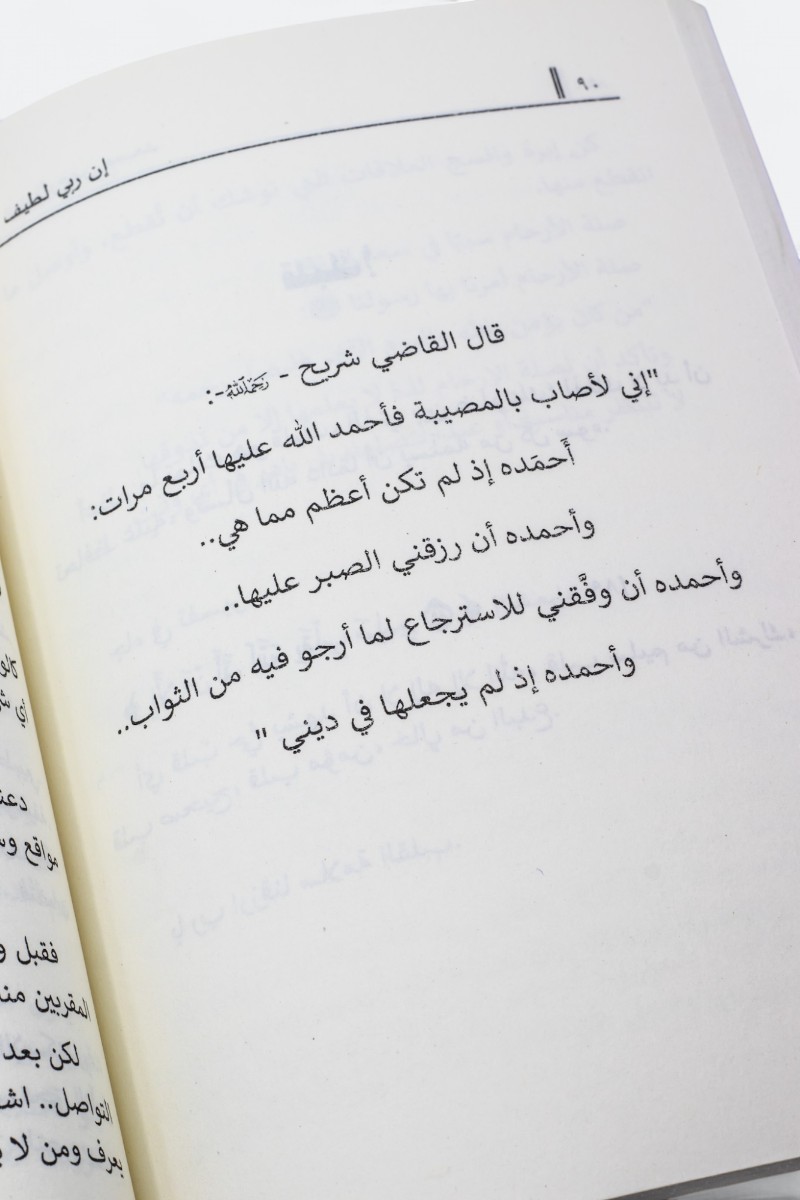 ٩٠
إن ربي لطيف
قال القاضي شريح - رحمه الله -:
"إني لأصاب بالمصيبة فأحمد الله عليها أربع مرات:
أَحمَده إذ لم تكن أعظم مما هي..
وأحمده أن رزقني الصبر عليها..
وأحمده أن وفَّقني للاسترجاع لما أرجو فيه من الثواب..
وأحمده إذ لم يجعلها في ديني "
مواقع
فقبل
المقربين
لكن بعد
التواصل..
يعرف ومن لا